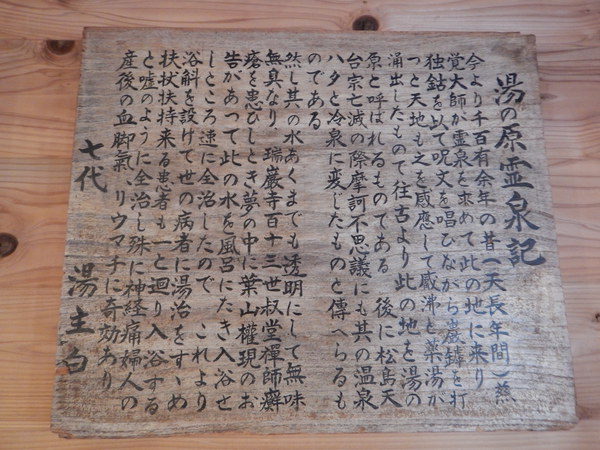 湯の原霊泉記
今より千百有余年の昔(天長年間)慈
覚大師が霊泉を求めて此の地に来り
独鈷を以て呪文を唱ひながら巌罅を打
つと天地も之を感應して感沸と薬湯が
涌出したもので往古より此の地を湯の
原と呼ばれるものである 後に松島天
台宗亡滅の際摩訶不思議にも其の温泉
ハタと冷泉に変じたものと傳へらるも
のである
然し其の水あくまでも透明にして無味
無臭なり 瑞巌寺百十三世叔堂禪師癬
瘡を患ひしとき夢の中に葉山權現のお
告があって此の水を風呂にたき入浴せ
しところ速に全治したので これより
浴斛を設けて世の病者に湯治をすゝめ
扶状扶持来る患者も一と廻り入浴する
と嘘のように全治し殊に神経痛婦人の
産後の血脚氣、リウマチに奇効あり
七代 湯主白